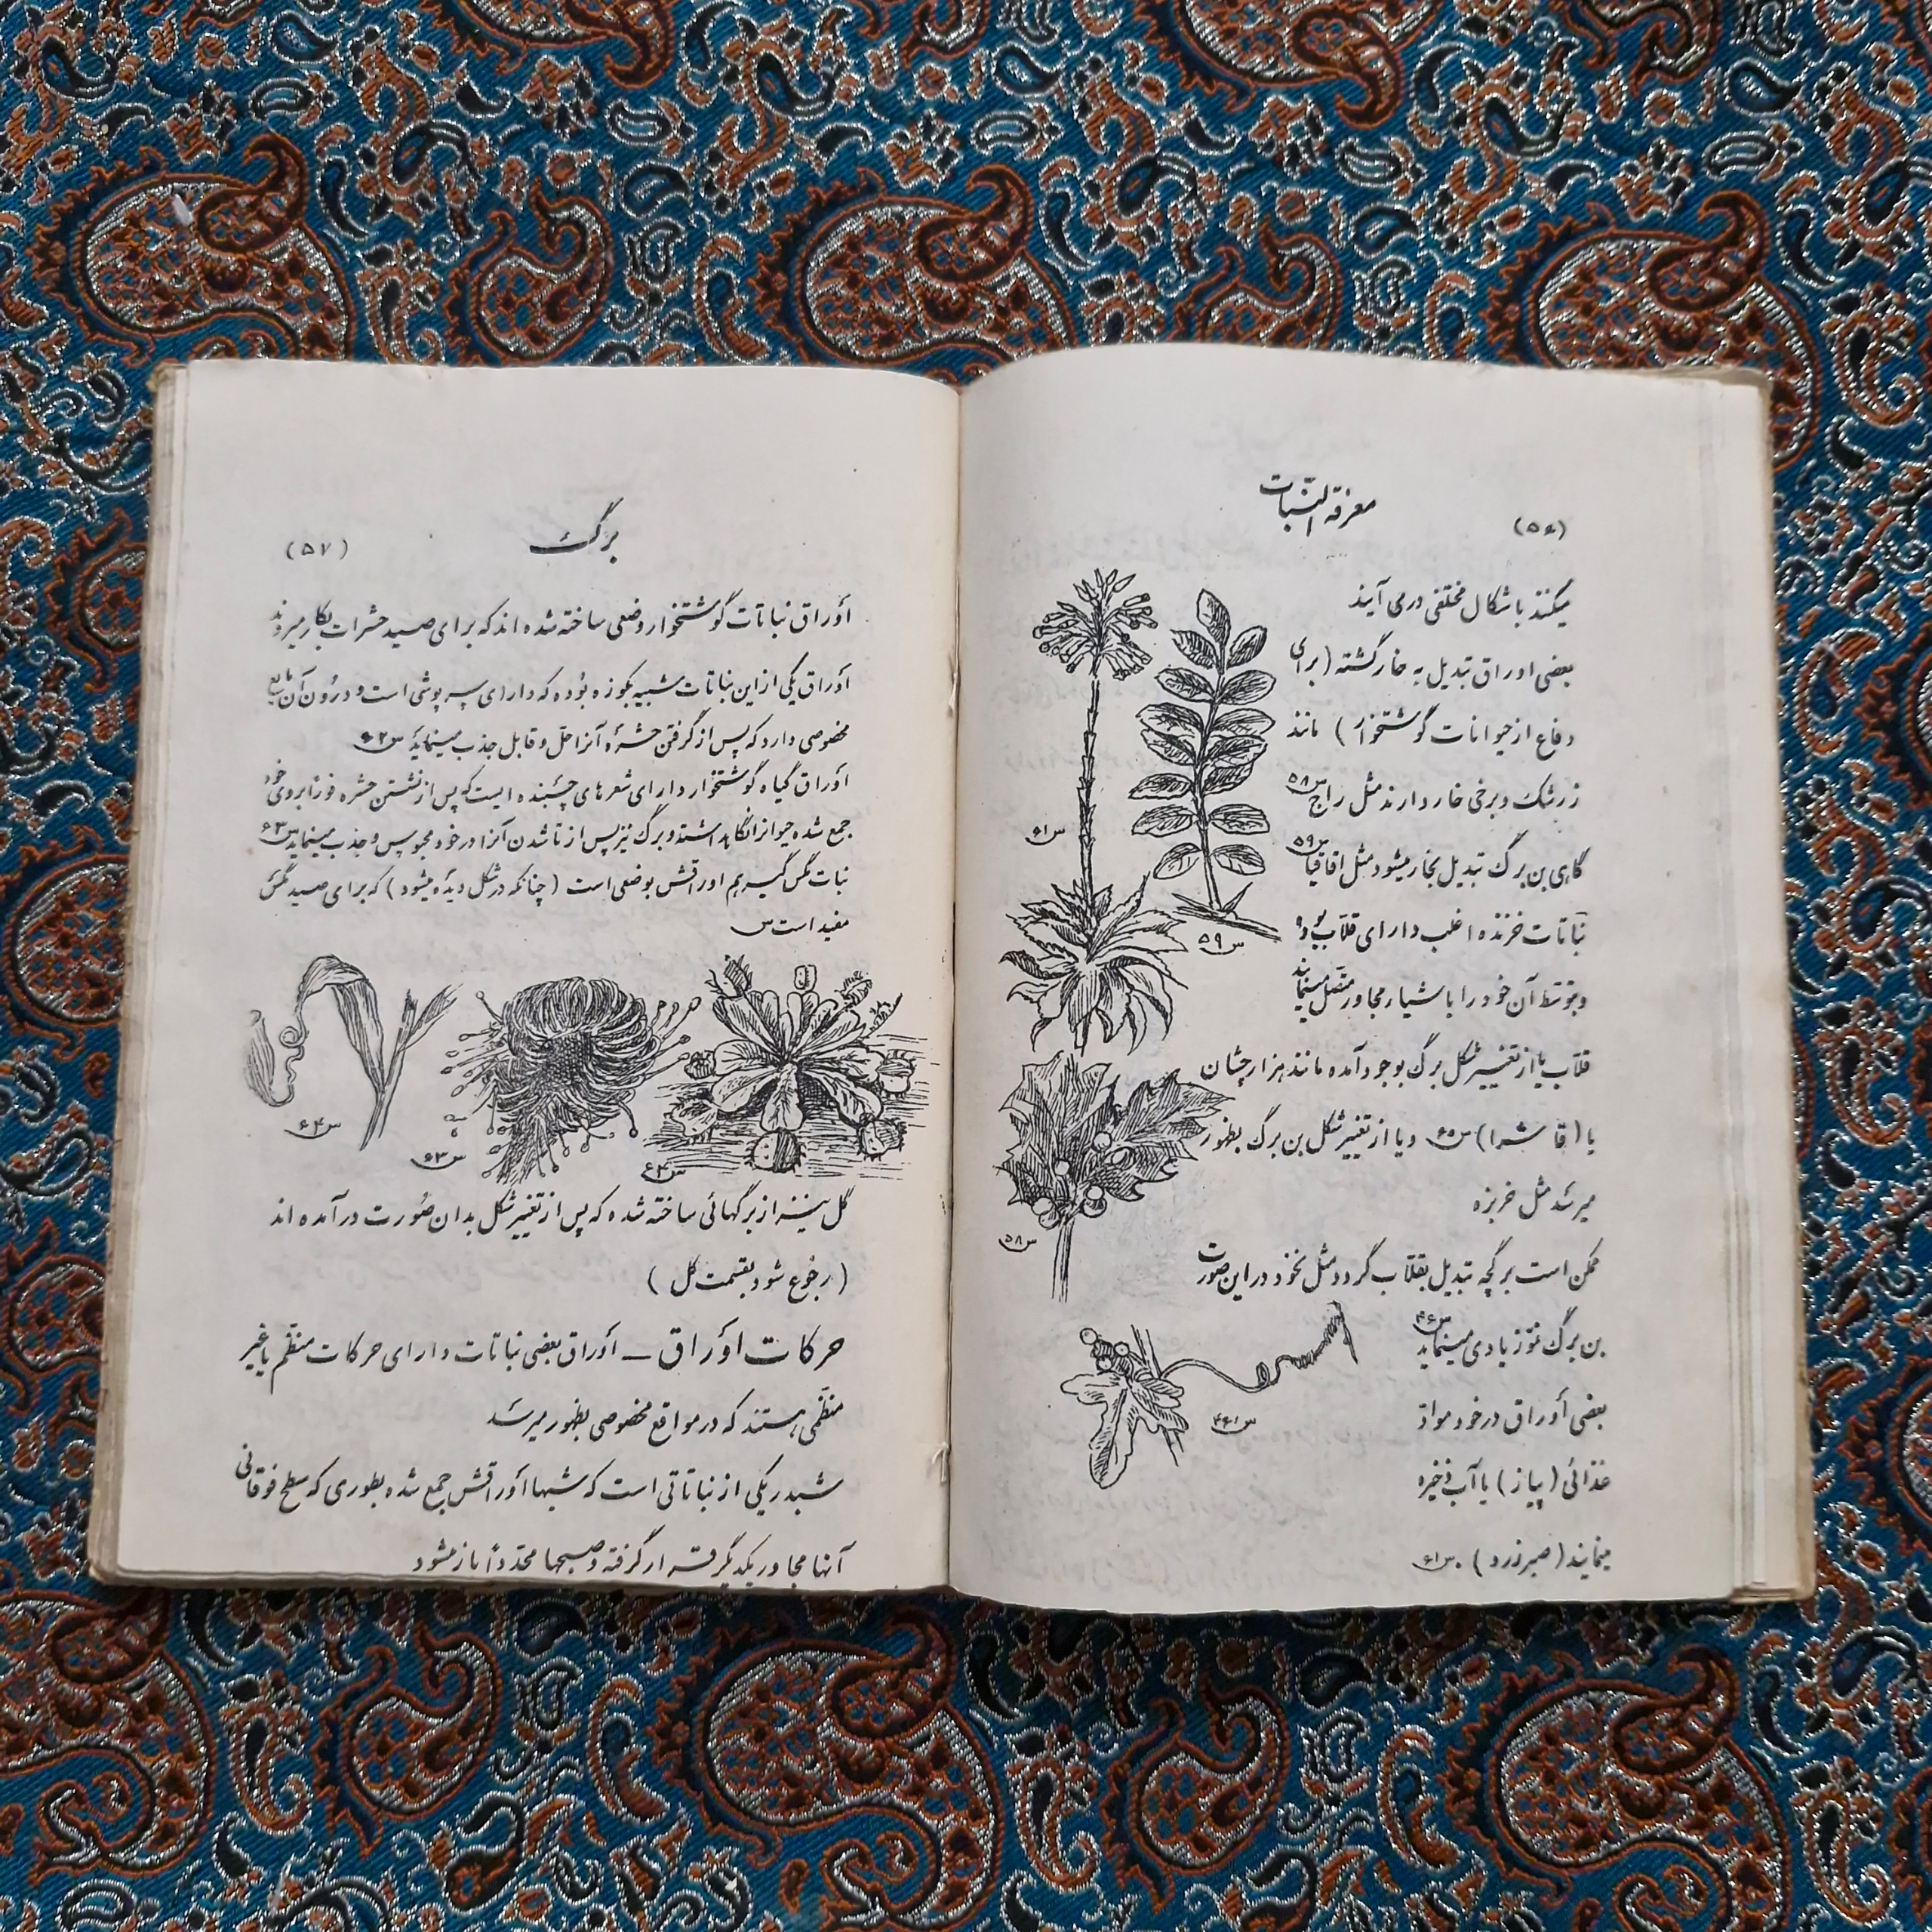 (۵۶)
معرفة النّبات
میکنند باشکال مختلفی درمی آیند
بعضی اوراق تبدیل به خار گشته (برای
دفاع از حیوانات گوشتخوار) مانند
زرشک و برخی خار دارند مثل راج س۵۸
گاهی بن برگ تبدیل بخار میشود مثل اقاقیا س۵۹
نباتات خزنده اغلب دارای قلّاب بوده
و بتوسّط آن خود را باشیاء مجاور متصّل مینمایند
قلّاب یا از تغییر شکل برگ بوجود آمده مانند هزار چشان
یا (قاشرا) و یا از تغییر شکل بن برگ بظهور
میرسد مثل خربزه
ممکن است برگچه تبدیل بقلّاب گردد مثل نخود در این صورت
بن برگ نموّ زیادی مینماید
بعضی أوراق در خود موادّ
غذائی (پیاز) یا آب ذخیره
مینمایند (صبر زرد) س۶۱
س۶۱
س۵۹
س۵۸
برگ
(۵۷)
أوراق نباتات گوشتخوار وضعی ساخته شده اند که برای صید حشرات بکار میروند
أوراق یکی از این نباتات شبیه بکوزه بوده که دارای سرپوشی است و درون آن مایع
مخصوصی دارد که پس از گرفتن حشره آنرا حل و قابل جذب مینماید س۶۲
أوراق گیاه گوشتخوار دارای شعرهای چسبنده ایست که پس از نشستن حشره فوراً بروی خود
جمع شده حیوانرا نگاهداشته و برگ نیز پس از تا شدن آنرا در خود محبوس و جذب مینماید س۶۳
نبات مگس گیر هم اوراقش بوضعی است (چنانکه در شکل دیده میشود) که برای صید مگس
مفید است س
س۶۳
گل نیز از برگهائی ساخته شده که پس از تغییر شکل بدان صورت درآمده اند
(رجوع شود بقسمت گل)
حرکات أوراق — أوراق بعضی نباتات دارای حرکات منظّم یا غیر
منظّمی هستند که در مواقع مخصوصی بظهور میرسد
شبدر یکی از نباتاتی است که شبها أوراقش جمع شده بطوری که سطح فوقانی
آنها مجاور یکدیگر قرار گرفته و صبحها مجدّداً باز میشود